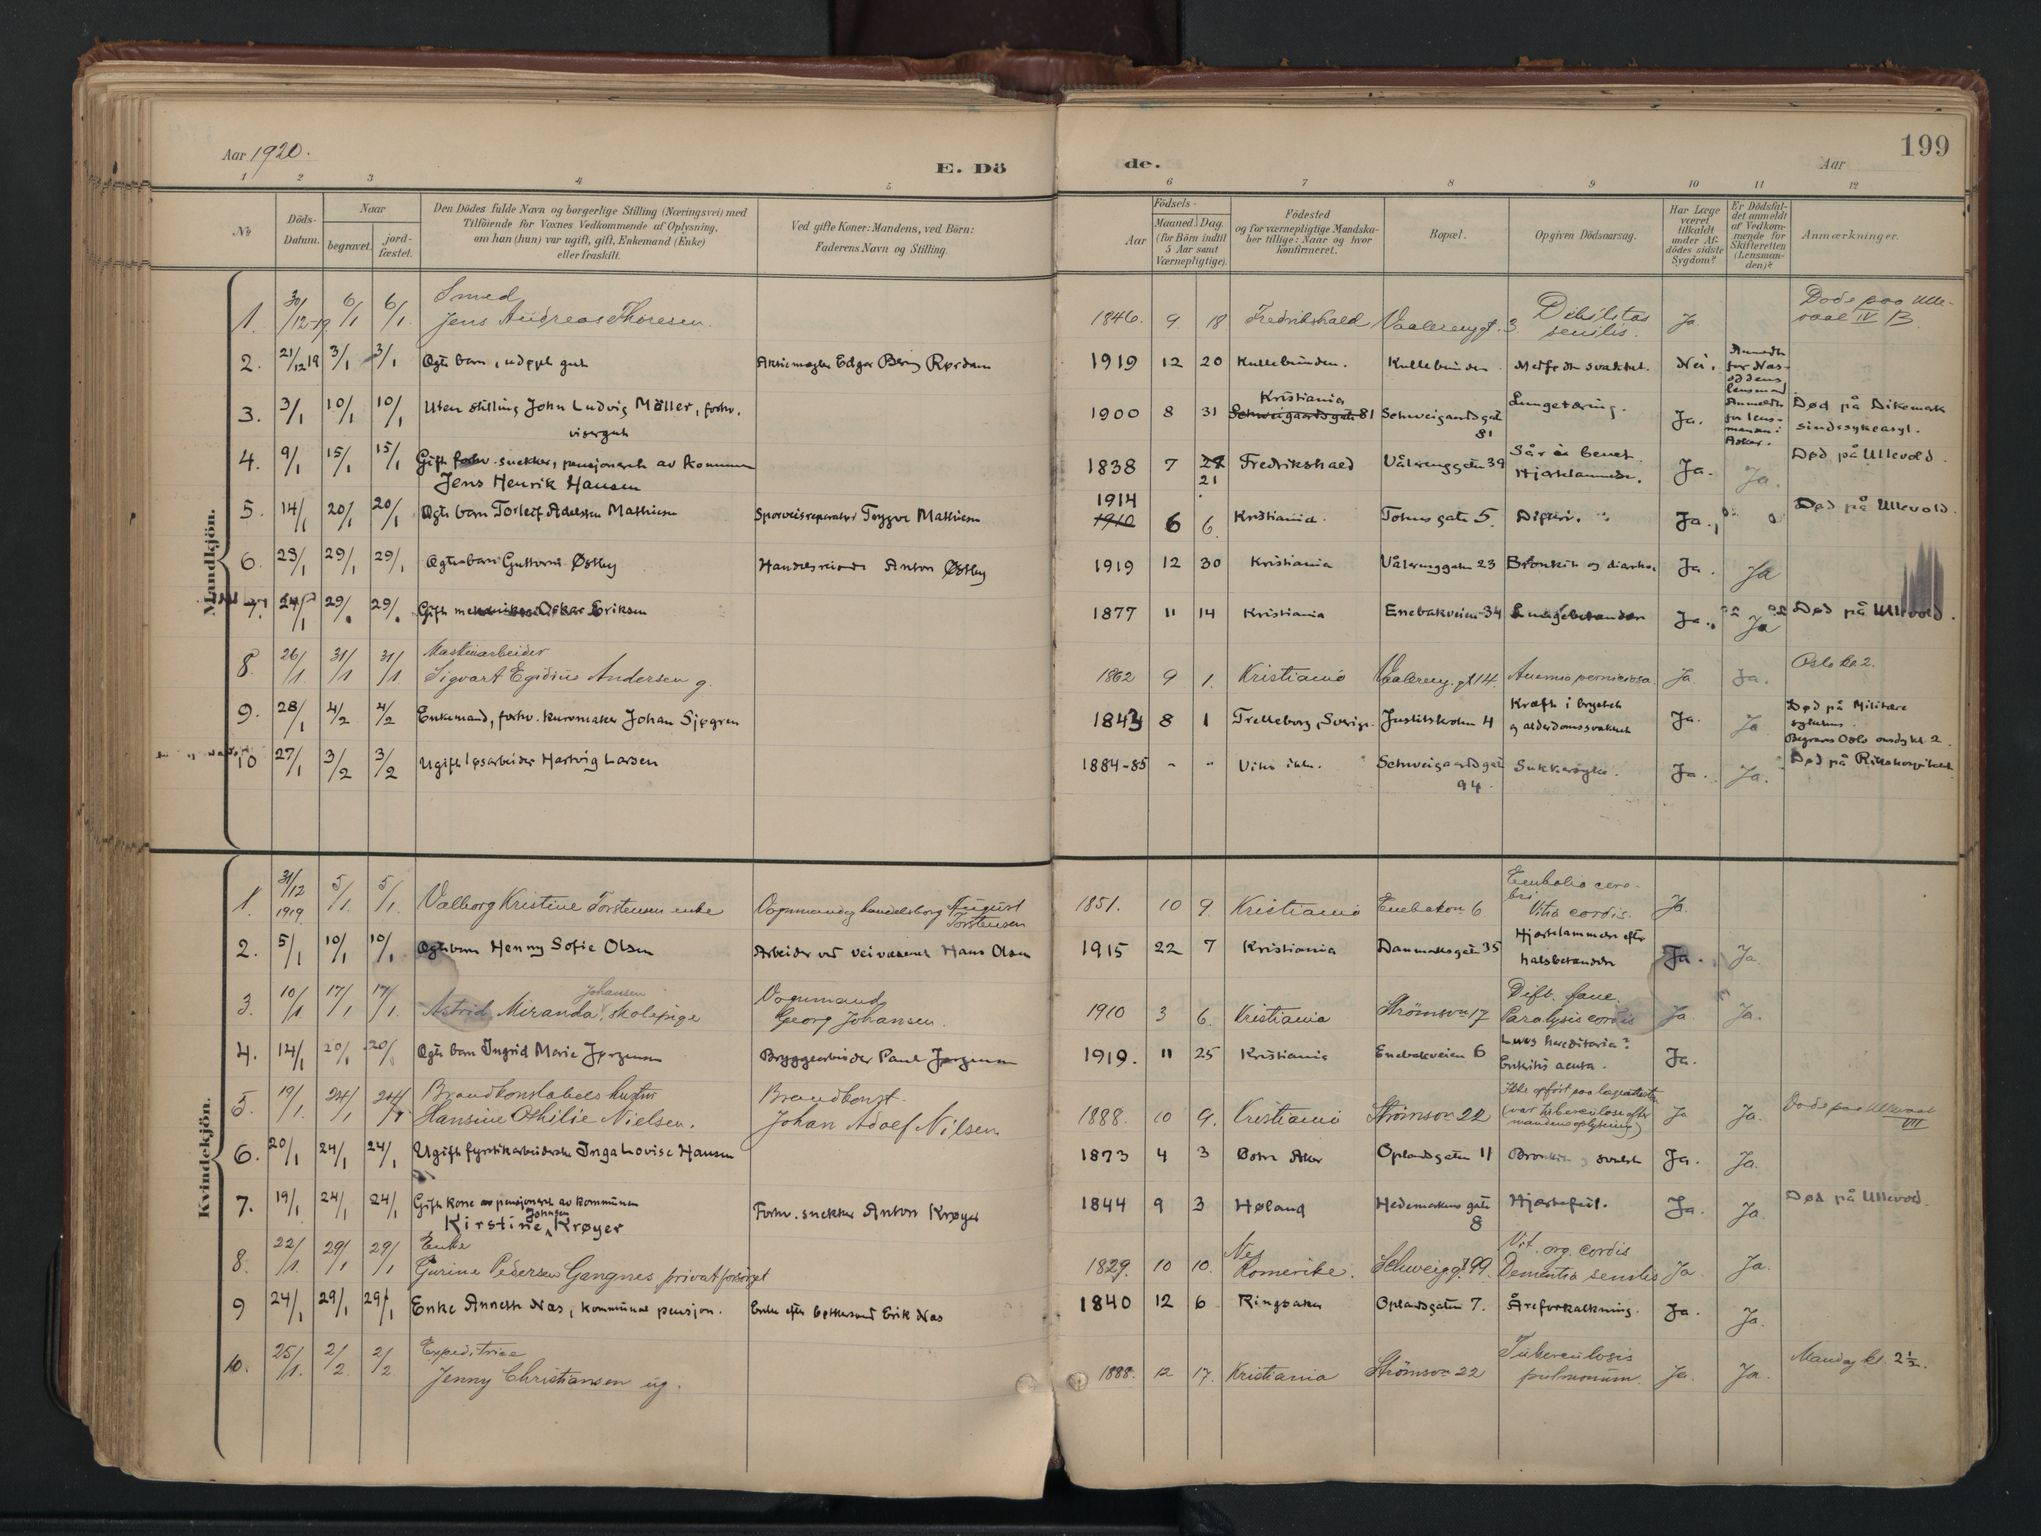 Aar 1920.
E. Dö
de.
Aar
199
1 2 3 4 5 6 7 8 9 10 11 12
No
Döds-Datum.
Naar
begravet.
jord-fæstet.
Den Dödes fulde Navn og borgerlige Stilling (Næringsvei) med
Tilföiende for Voxnes Vedkommende af Oplysning,
om han (hun) var ugift, gift, Enkemand (Enke)
eller fraskilt.
Ved gifte Koner: Mandens, ved Börn:
Faderens Navn og Stilling.
Födsels-
Aar
Maaned.
Dag.
(for Börn indtil
5 Aar samt
Værnepligtige).
Födested
og for værnepligtige Mandska-
ber tillige: Naar og hvor
konfirmeret.
Bopæl.
Opgiven Dödsaarsag.
Har Læge
været
tilkaldt
under Af-
dödes sidste
Sygdom?
Er Dödsfal-
det anmeldt
af Vedkom-
mende for
Skifteretten
(Lensman-
den)?
Anmærkninger.
Mandkjön.
1. 30/12-19 6/1 6/1 Smed
Jens Andreas Thoresen. 1846. 9. 18 Fredrikshald Vaalerenggt. 3 Debilitas
senilis. Ja. Døde paa Ulle-
vaal IV B.
2. 21/12 19 3/1 3/1 Ogte barn, udøpt gut Aktiemegler Edgar Bering Rørdam 1919 12 20 Kullebunden. Kullebunden Medfødt svakhet. Nei. Anmeldt
for Nes-
oddens
lensmand
3. 3/1 10/1 10/1 Uten stilling John Ludvig Möller, forhv.
visergut 1900 8 31 Kristiania
Schweigaardsgate 81 Schweigaardsgate
81 Lungetæring. Ja. Anmeldt
for lens-
manden i
Asker. Død på Dikemark
sindssykeasyl.
4. 9/1 15/1 15/1 Gift forhv. snekker, pensjonert av kommunen
Jens Henrik Hansen 1838 7 21 Fredrikshald Vålerenggaten 39 Sår i benet.
Hjertelammelse. Ja. Ja. Død på Ullevold.
5. 14/1 20/1 20/1 Ogte barn Torleif Adelsten Mathisen Sporveisreparatør Trygve Mathisen 1914
1910 6 6. Kristiania. Tofusgate 5. Difteri. Ja. Død på Ullevold.
6. 23/1 29/1 29/1 Ogte barn Guttorm Østby Handelsreisende Anton Østby 1919 12 30 Kristiania Vålerenggaten 23 Bronkit og diarrhoe Ja. Ja
7. 24/1 29/1 29/1 Gift mekaniker Oskar Eriksen 1877 11 14 Kristiania Enebakveien 34 Lungebetændelse Ja. Ja Død på Ullevold.
8. 26/1 31/1 31/1. Maskinarbeider
Sigvart Egidius Andersen g. 1862 9 1. Kristiania Vaalereng.gt 14. Anemia perniciosa. Ja. Ja. Oslo kl 2.
9. 28/1 4/2 4/2 Enkemand, forhv. kurvmaker Johan Sjøgren 1843 8 1 Trelleborg, Sverige. Justitskroken 4 Kræft i brystet
og alderdomssvakhet Ja. Ja Død på Militære
sykehus.
Begraves Oslo onsdag kl. 2.
10 27/1 3/2 3/2 Ugift løsarbeider Hartvig Larsen 1884-85 - " Vites ikke. Schweigaardsgate
94. Sukkersyke. Ja. Ja. Død på Rikshospitalet.
Kvindekjön.
1 31/12 1919. 5/1. 5/1. Valborg Kristine Torstensen enke Vognmand og handelsborg August
Torstensen 1851. 10 9. Kristiania Enebakvn 6. Embolia cere-
bri
Vitia cordis. Ja.
2. 5/1 10/1 10/1 Ogte barn Henny Sofie Olsen Arbeider ved veivæsenet Hans Olsen 1915 22 7 Kristiania Danmarksgaten 35 Hjertelammelse efter
halsbetændelse Ja. Ja.
3 10/1 17/1 17/1. Astrid Miranda Johansen, skolepige Vognmand
Georg Johansen. 1910 3 6. Kristiania Strømsvn 17 Dift. fauc.
Paralysis cordis Ja. Ja.
4. 14/1 20/1 20/1 Ogte barn Ingrid Marie Jørgensen Bryggearbeider Paul Jørgensen 1919. 11 25 Kristiania Enebakveien 6 Lues hereditaria?
Enteritis acuta. Ja.
5. 19/1. 24/1 24/1 Brandkonstabels hustru
Hansine Othilie Nielsen. Brandkonst.
Johan Adolf Nilsen 1888. 10 9. Kristiania Strømsvn 22 Ikke opført paa lægeattesten
(var tuberculose efter
mandens oplysning) J Ja. Døde paa Ullevaal
VII
6. 20/1 24/1 24/1 Ugift fyrstikarbeiderske Inga Lovise Hansen 1873 4 3 Østre Aker Oplandsgaten 11 Bronkit Ja. Ja.
7. 19/1 24/1 24/1 Gift kone av pensjonert av kommunen
Kirstine Johnsen Krøyer Forhv. snekker Anton Krøyer 1844 9 3 Høland Hedemarkens gate
8 Hjertefeil. Ja. Ja. Død på Ullevold.
8. 22/1. 29/1 29/1 Enke
Gurine Pedersen Gangnes privat forsørget 1829. 10 10. Nes
Romerike. Schweiggt 99. Vit. org. cordis
Dementia senilis Ja. Ja.
9 24/1 29/1 29/1 Enke Annette Næs, kommunal pensjon. Enke efter Erik Næs 1840 12 6 Ringsaker Oplandsgaten 7. Åreforkalkning. Ja. Ja.
10. 25/1. 2/2. 2/2 Expeditrice
Jenny Christiansen ug. 1888. 12 17. Kristiania Strømsvn 22 Tuberculosis
pulmonum. Ja. Ja. Mandag kl. 2½.